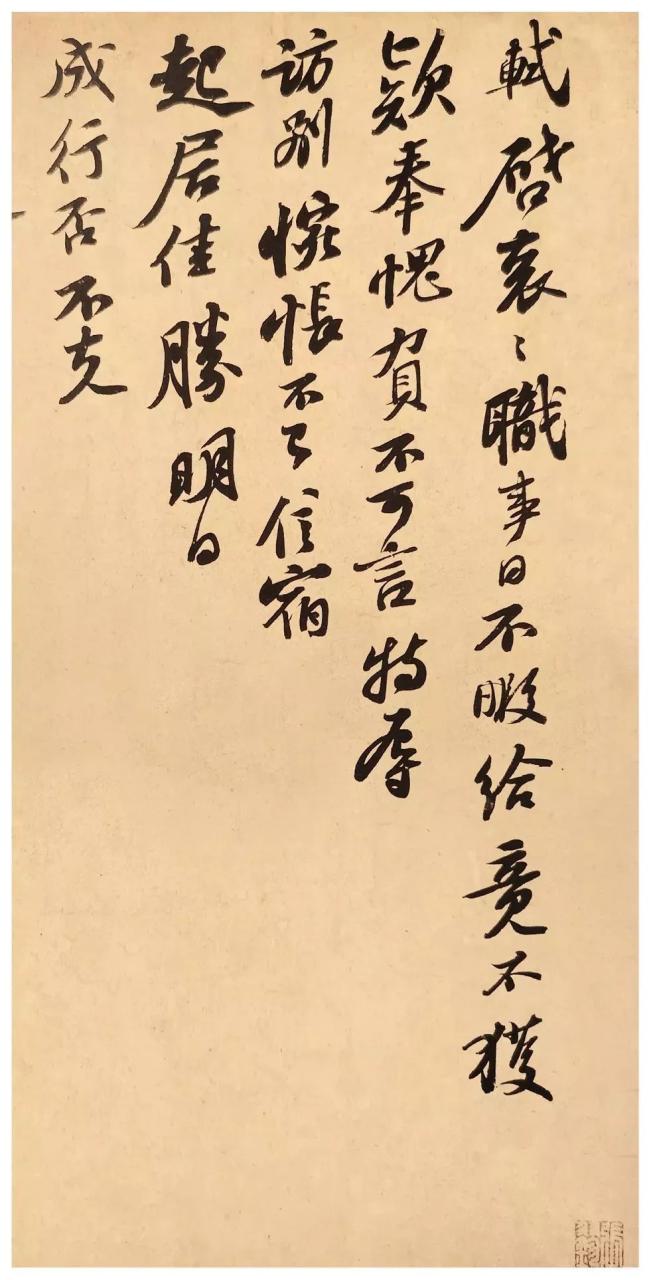 軾啓衮〻職事日不暇給竟不獲
款奉愧負不可言特辱
訪別惋悵不已信宿
起居佳勝明日
成行否不克